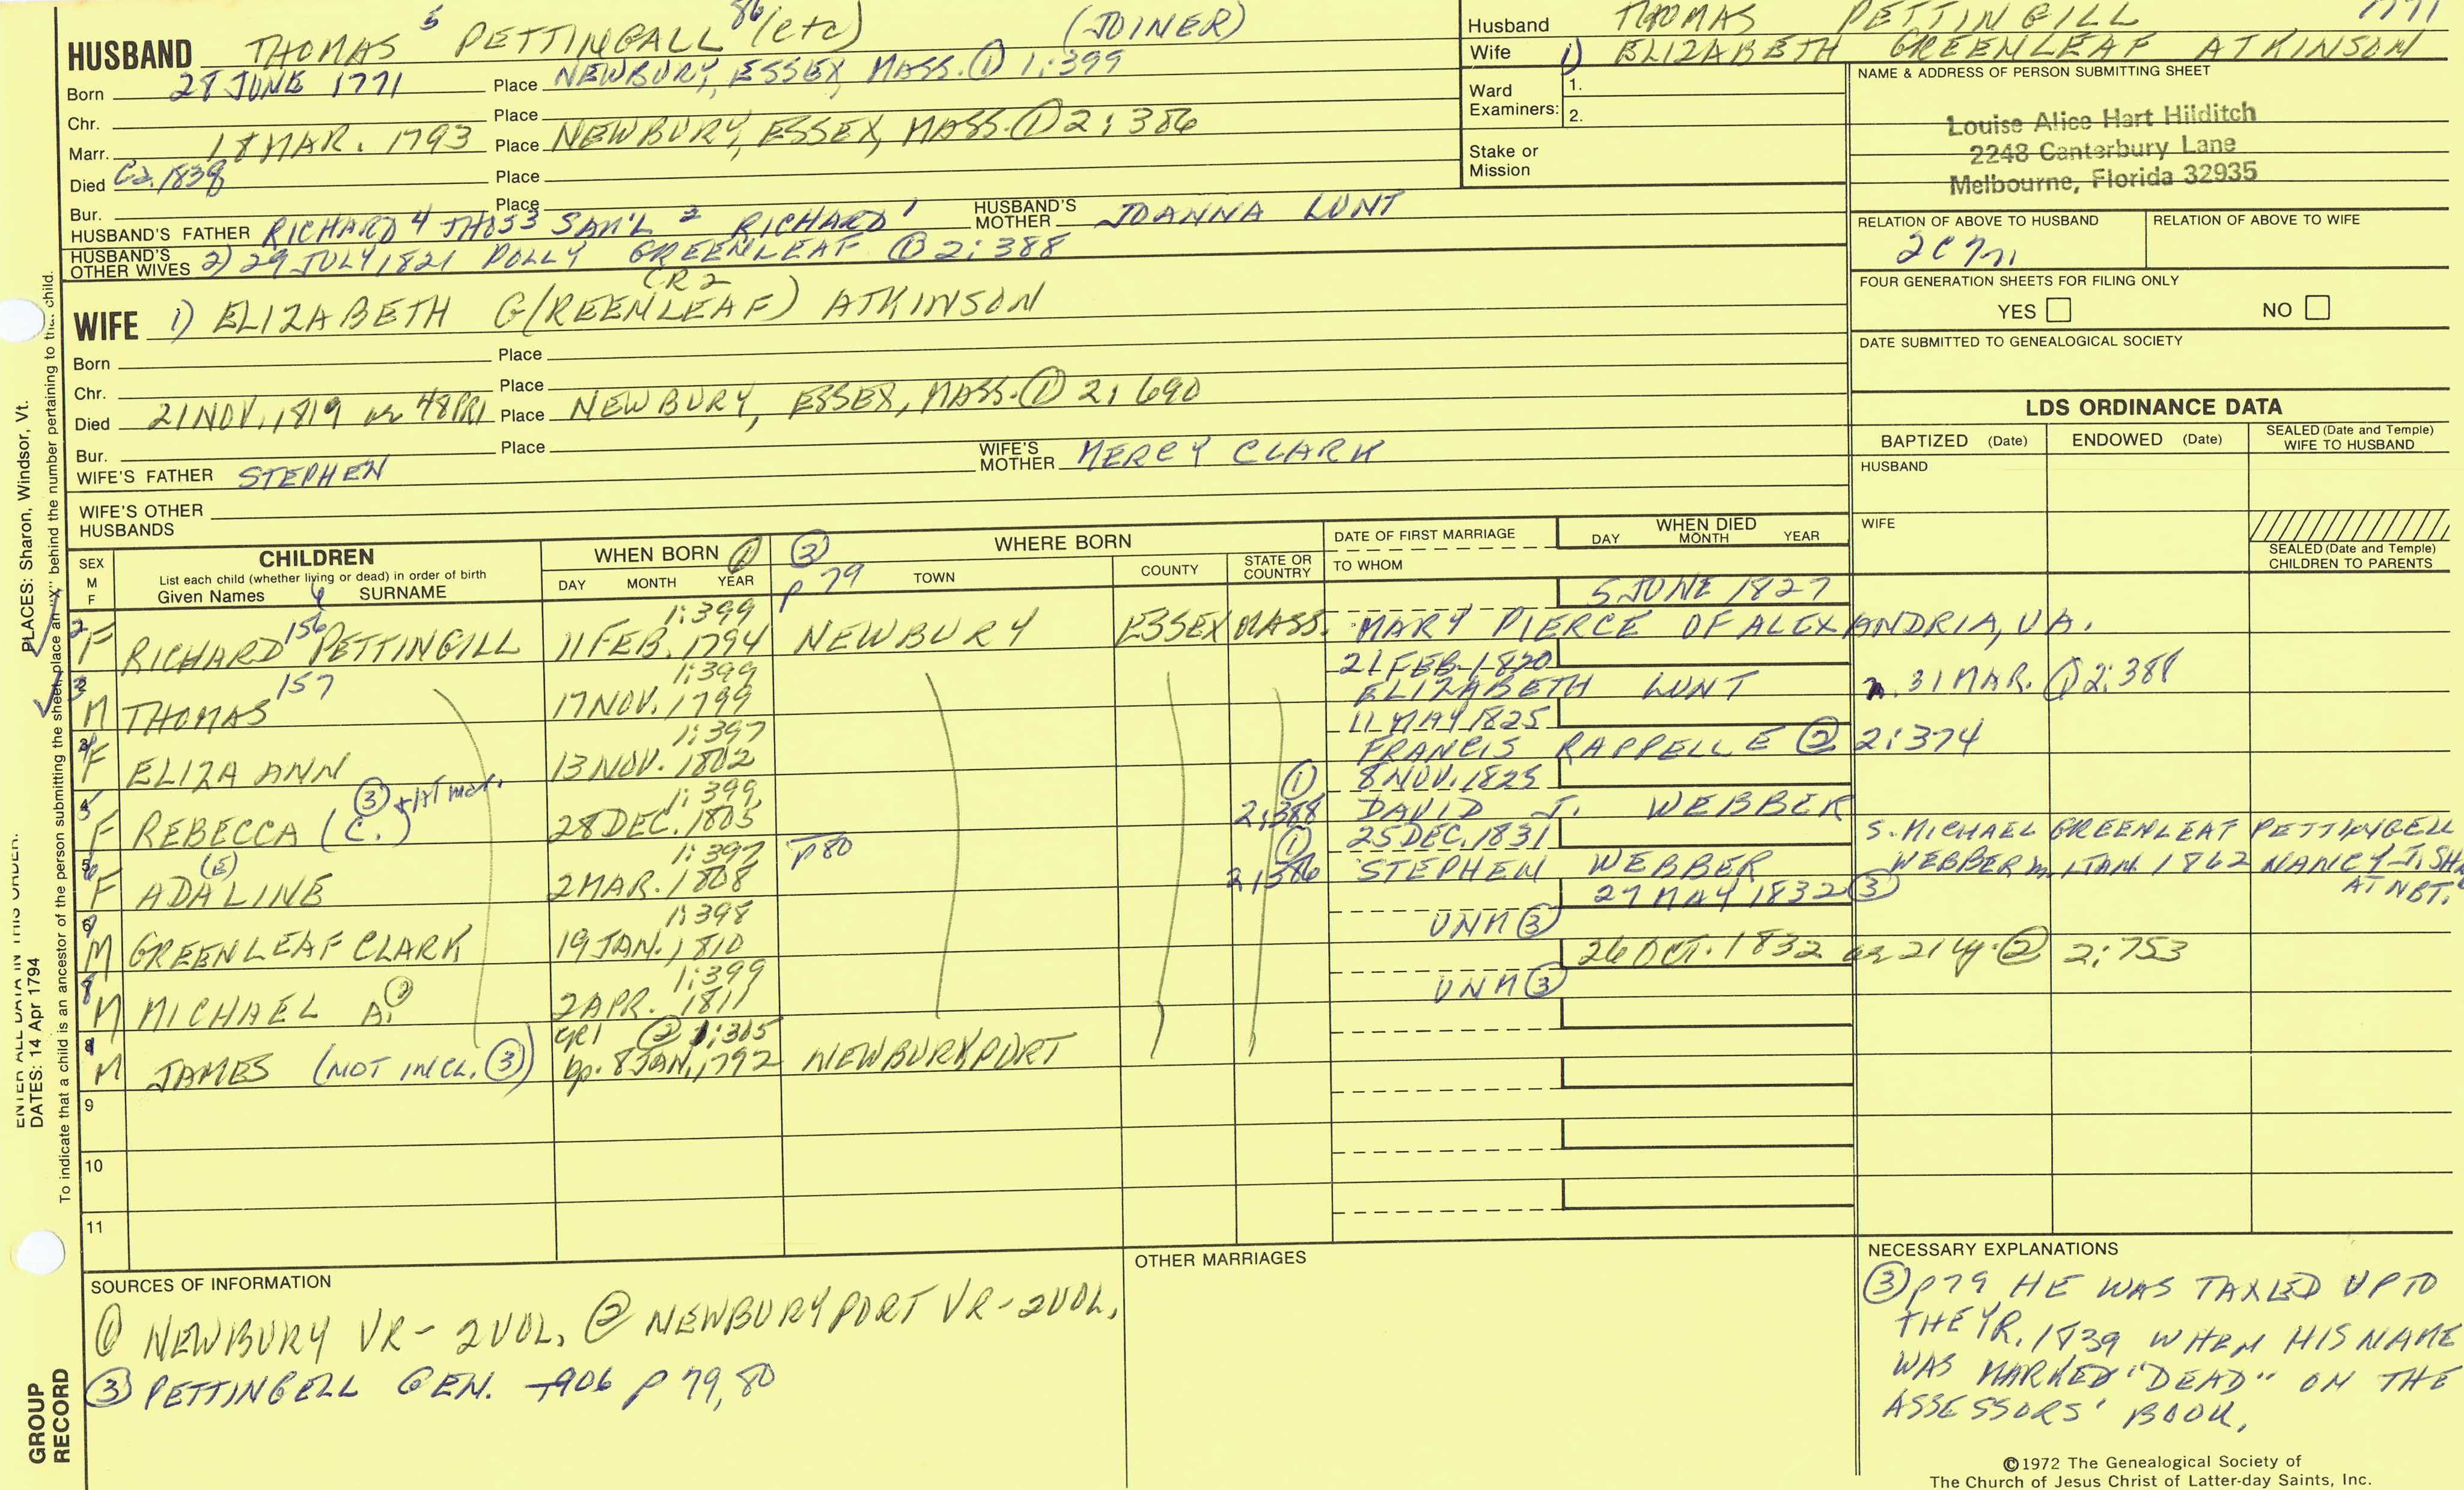 HUSBAND THOMAS 5 PETTINGALL 86 (etc) (JOINER)
Born 28 JUNE 1771 Place NEWBURY, ESSEX, MASS. ① 1:399
Chr. Place
Marr. 18 MAR. 1793 Place NEWBURY, ESSEX, MASS. ① 2:386
Died Ca. 1838 Place
Bur. Place
HUSBAND'S FATHER RICHARD 4 THOS 3 SAM'L 2 RICHARD 1 HUSBAND'S MOTHER JOANNA LUNT
HUSBAND'S OTHER WIVES 2) 29 JULY 1821 POLLY GREENLEAF ① 2:388
CR2
WIFE 1) ELIZABETH G(REENLEAF) ATKINSON
Born Place
Chr. Place
Died 21 NOV. 1819 48 CR1 Place NEWBURY, ESSEX, MASS. ① 2:690
Bur. Place
WIFE'S FATHER STEPHEN WIFE'S MOTHER MERCY CLARK
WIFE'S OTHER HUSBANDS
Husband THOMAS PETTINGILL 1771
Wife 1) ELIZABETH GREENLEAF ATKINSON
Ward Examiners: 1.
2.
Stake or Mission
NAME & ADDRESS OF PERSON SUBMITTING SHEET
Louise Alice Hart Hilditch
2248 Canterbury Lane
Melbourne, Florida 32935
RELATION OF ABOVE TO HUSBAND RELATION OF ABOVE TO WIFE
FOUR GENERATION SHEETS FOR FILING ONLY
YES NO
DATE SUBMITTED TO GENEALOGICAL SOCIETY
LDS ORDINANCE DATA
BAPTIZED (Date) ENDOWED (Date) SEALED (Date and Temple) WIFE TO HUSBAND
HUSBAND
WIFE
SEALED (Date and Temple) CHILDREN TO PARENTS
SEX M F
CHILDREN
List each child (whether living or dead) in order of birth
Given Names 6 SURNAME
WHEN BORN ①
DAY MONTH YEAR
③ p 79 WHERE BORN
TOWN COUNTY STATE OR COUNTRY
DATE OF FIRST MARRIAGE
TO WHOM
WHEN DIED
DAY MONTH YEAR
1:399 5 JUNE 1827
F RICHARD 156 PETTINGILL 11 FEB. 1794 NEWBURY ESSEX MASS. MARY PIERCE OF ALEXANDRIA, VA.
1:399 21 FEB. 1820
M THOMAS 157 17 NOV. 1799 ELIZABETH LUNT 31 MAR. ① 2:388
1:397 11 MAY 1825
F ELIZA ANN 13 NOV. 1802 FRANCIS RAPPELLE ② 2:374
③ 1:399 ① 8 NOV. 1825
F REBECCA (C.) 28 DEC. 1805 2:388 DAVID J. WEBBER
(E) 1:397 p 80 ① 25 DEC. 1831
F ADALINE 2 MAR. 1808 2:386 STEPHEN WEBBER
S. MICHAEL GREENLEAF PETTINGELL
WEBBER m. 1 JAN. 1862 NANCY J.
AT NBT.
1:398 27 MAY 1832 ③
M GREENLEAF CLARK 19 JAN. 1810 UNM ③
1:399 26 OCT. 1832 ae 21 y. ② 2:753
M MICHAEL A. 2 APR. 1811 UNM ③
CR1 ② 1:305
M JAMES (NOT INCL. ③) bp. 8 JAN. 1792 NEWBURYPORT
9
10
11
SOURCES OF INFORMATION
① NEWBURY VR - 2 VOL. ② NEWBURYPORT VR - 2 VOL.
③ PETTINGELL GEN. 1906 p 79, 80
OTHER MARRIAGES
NECESSARY EXPLANATIONS
③ p 79 HE WAS TAXED UP TO
THE YR. 1839 WHEN HIS NAME
WAS MARKED "DEAD" ON THE
ASSESSORS' BOOK.
©1972 The Genealogical Society of
The Church of Jesus Christ of Latter-day Saints, Inc.
PLACES: Sharon, Windsor, Vt.
To indicate that a child is an ancestor of the person submitting the sheet, place an "X" behind the number pertaining to that child.
ENTER ALL DATA IN THIS ORDER:
DATES: 14 Apr 1794
GROUP RECORD